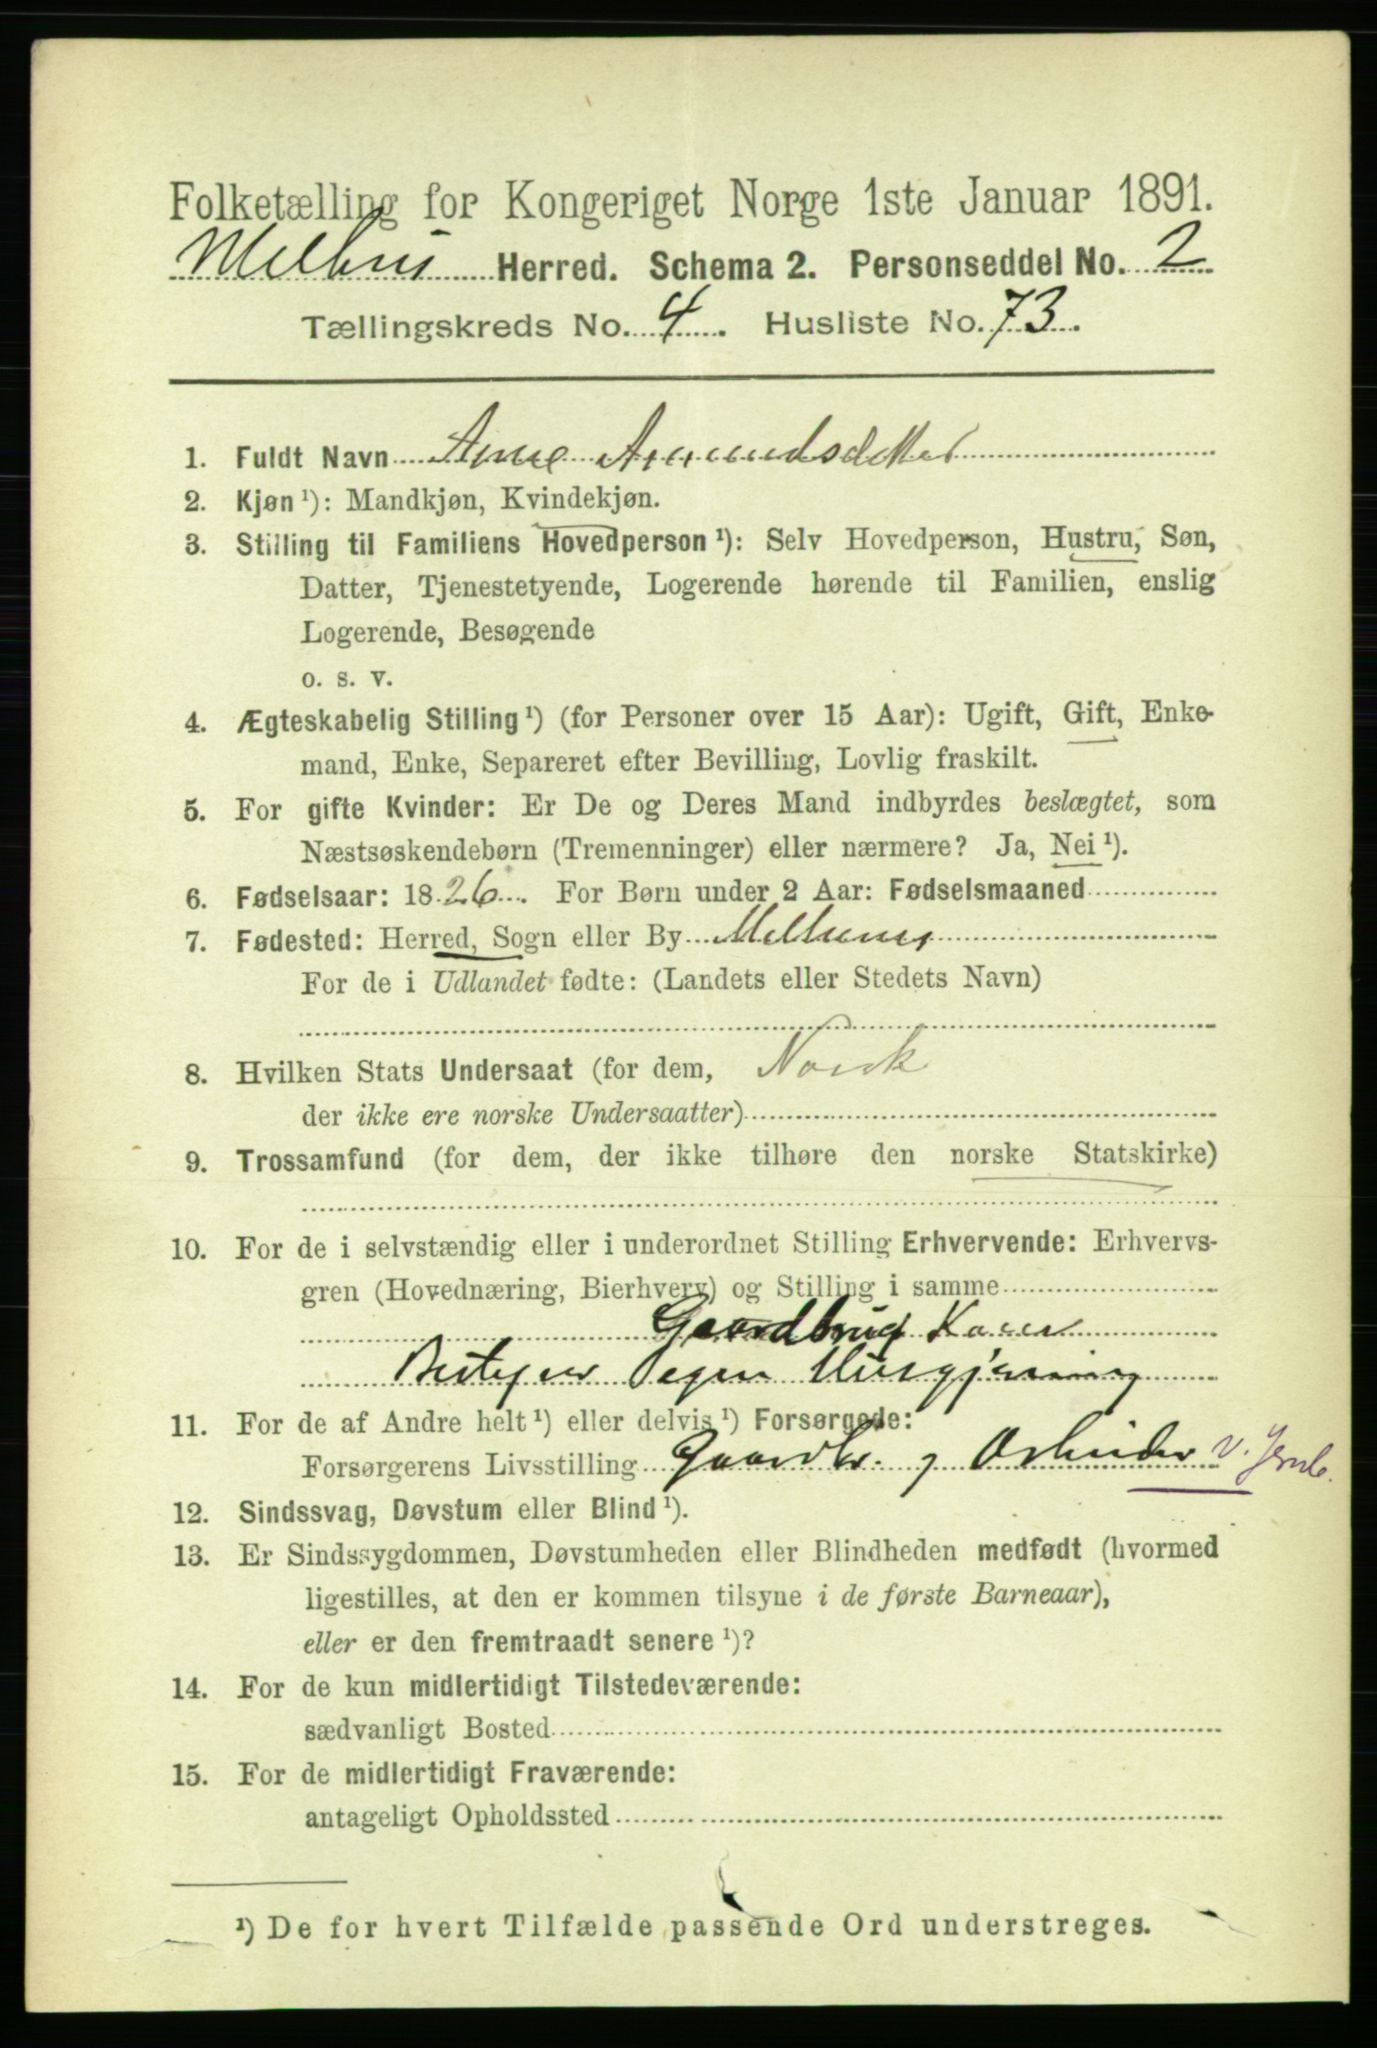 Folketælling for Kongeriget Norge 1ste Januar 1891.
Melhus Herred. Schema 2. Personseddel No. 2
Tællingskreds No. 4. Husliste No. 73.
1. Fuldt Navn Anne Amundsdatter
2. Kjøn ¹): Mandkjøn, Kvindekjøn.
3. Stilling til Familiens Hovedperson ¹): Selv Hovedperson, Hustru, Søn,
Datter, Tjenestetyende, Logerende hørende til Familien, enslig
Logerende, Besøgende
o. s. v.
4. Ægteskabelig Stilling ¹) (for Personer over 15 Aar): Ugift, Gift, Enke-
mand, Enke, Separeret efter Bevilling, Lovlig fraskilt.
5. For gifte Kvinder: Er De og Deres Mand indbyrdes beslægtet, som
Næstsøskendebørn (Tremenninger) eller nærmere? Ja, Nei ¹).
6. Fødselsaar: 1826. For Børn under 2 Aar: Fødselsmaaned
7. Fødested: Herred, Sogn eller By Melhuus
For de i Udlandet fødte: (Landets eller Stedets Navn)
8. Hvilken Stats Undersaat (for dem, Norsk
der ikke ere norske Undersaatter)
9. Trossamfund (for dem, der ikke tilhøre den norske Statskirke)
10. For de i selvstændig eller i underordnet Stilling Erhvervende: Erhvervs-
gren (Hovednæring, Bierhverv) og Stilling i samme
Gaardbrug Kone
Bestyrer Husgjerning
11. For de af Andre helt ¹) eller delvis ¹) Forsørgede:
Forsørgerens Livsstilling Gaardbr. og Arbeider v. Jernb.
12. Sindssvag, Døvstum eller Blind ¹).
13. Er Sindssygdommen, Døvstumheden eller Blindheden medfødt (hvormed
ligestilles, at den er kommen tilsyne i de første Barneaar),
eller er den fremtraadt senere ¹)?
14. For de kun midlertidigt Tilstedeværende:
sædvanligt Bosted
15. For de midlertidigt Fraværende:
antageligt Opholdssted
¹) De for hvert Tilfælde passende Ord understreges.